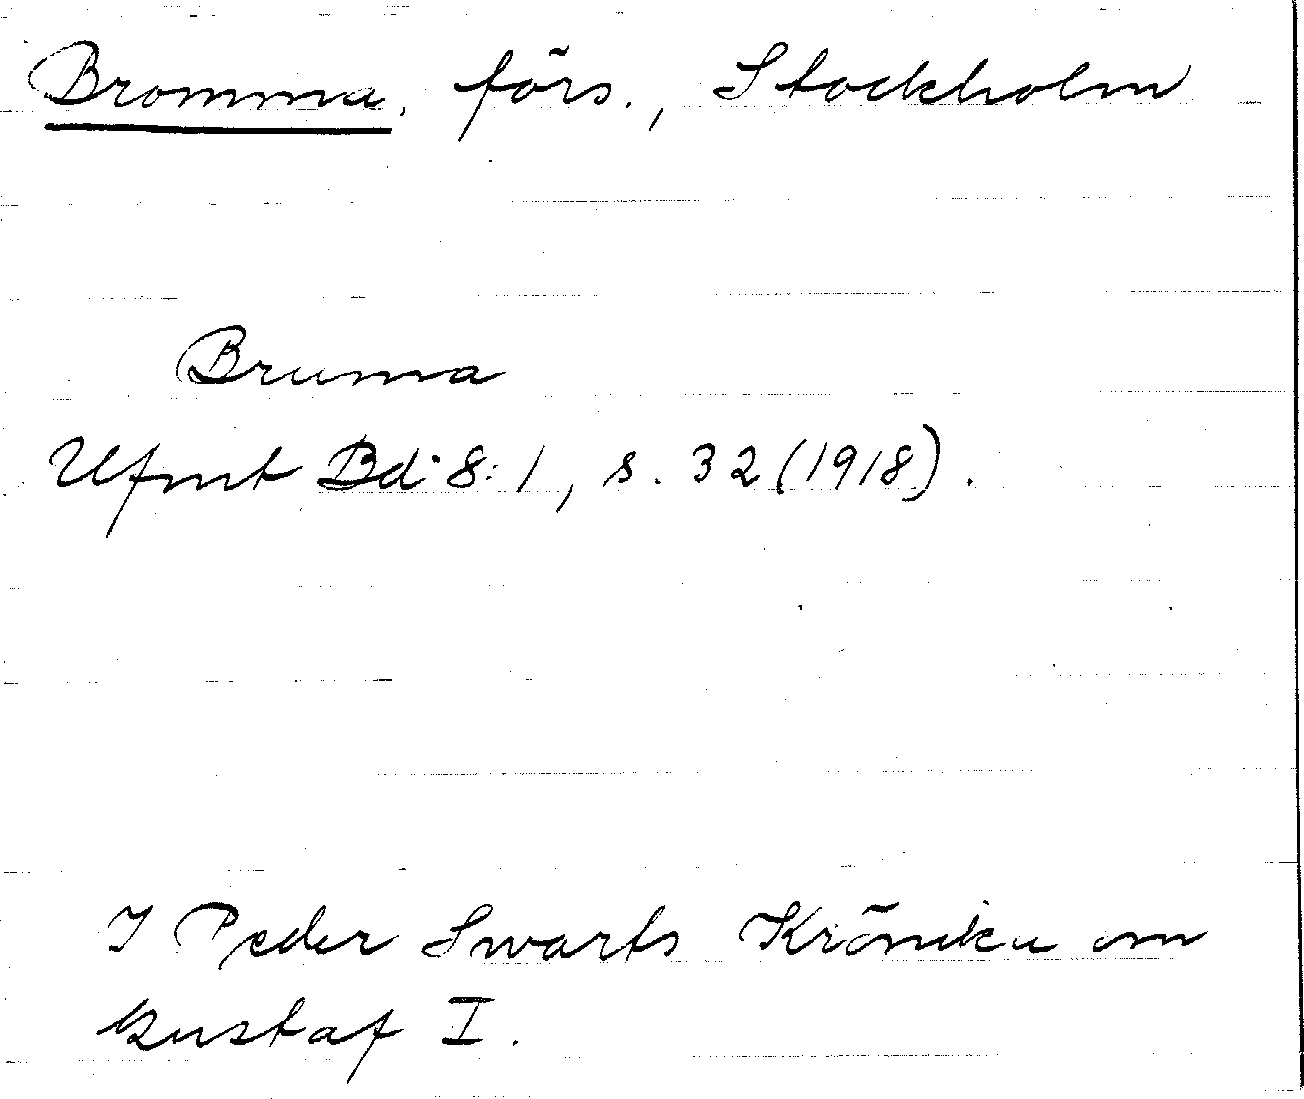 Bromma, förs., Stockholm
Bruma
Ufmt Bd 8:1, s. 32 (1918).
I Peder Swarts Krönika om
Gustaf I.